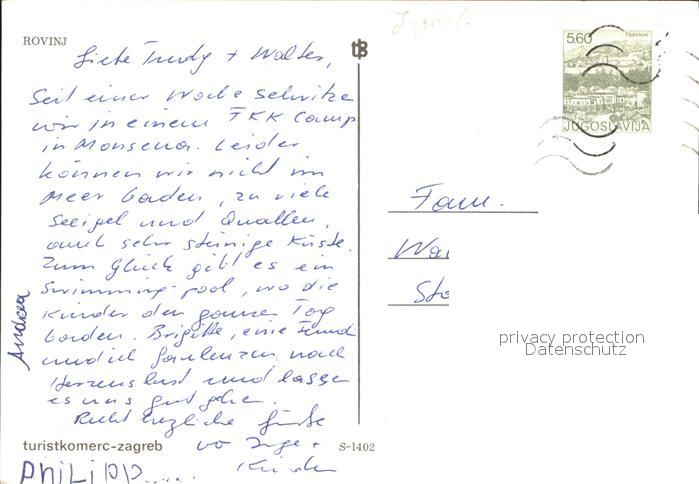 ROVINJ
Liebe Trudy + Walter,
Seit einer Woche schwitze
wir in einem FKK Camp
in Monsena. Leider
können wir nicht im
Meer baden, zu viele
Seeigel und Quallen,
auch sehr steinige Küste.
Zum Glück gibt es ein
Swimming-pool, wo die
Kinder den ganzen Tag
baden. Brigitte, eine Freund
und ich faulenzen nach
Herzenslust und lassen
es uns gut gehen.
Recht herzliche Grüsse
vo Inge +
Kinder
Andrea
PHiLiPP.....
turistkomerc-zagreb
S-1402
tz
5.60
TRAVNIK
JUGOSLAVIJA
Fam.
Wa
Sto
privacy protection
Datenschutz